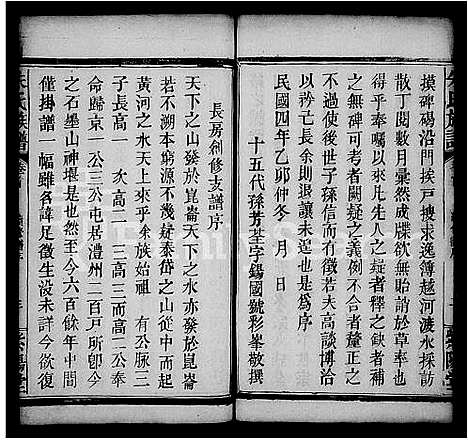 摸碑碣沿門挨戶搜求逸簿越河渡水採訪
散丁閱數月纔獲牒欲無貽誚於草率也
得乎奉囑以來凡先人之疑者釋之缺者補
之無碑可考者闕疑之義例不合者釐正之
不過使後世子孫信而有徵若夫高談博洽
以矜己長余則退讓未遑也是爲序
民國四年乙卯仲冬月日
十五代孫芳荃字錫國號彩峯敬撰
長房創修支譜序
天下之山發於崑崙天下之水亦發於崑崙
使不溯本窮源不幾疑泰岱之山從中而起
黃河之水天上來乎余族始祖 有公脉三
子長高一 次高二 三高三而高二公奉
命歸京一公三公屯居澧州二百戶所卽今
之石墨山神堰是也至今六百餘年中間
僅掛譜一幅雖名諱足徵生没未詳今欲復
朱氏族譜